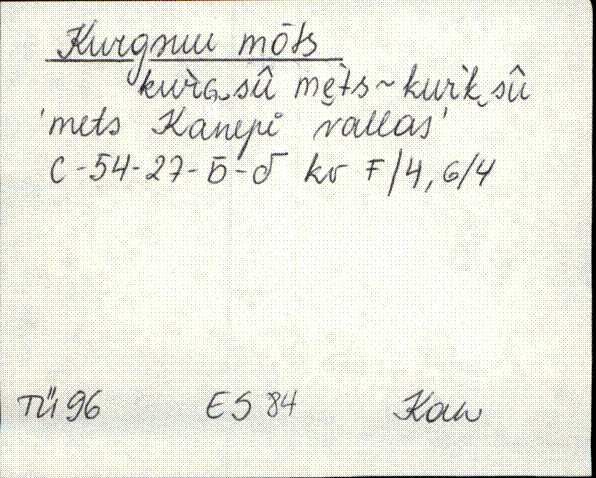 Kurgsuu mõts
kur̀G‿sû me̮t̀s ~ kur̀k‿sû
'mets Kanepi vallas'
C-54-27-Б-б kv F/4, G/4
TÜ 96 ES 84 Kan